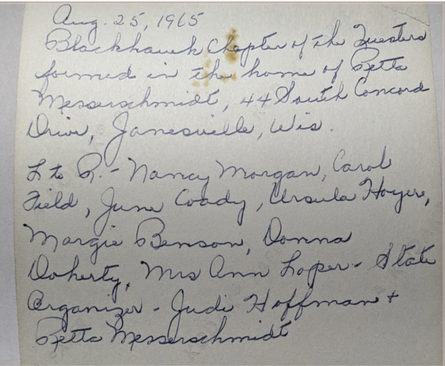 Aug. 25, 1965
Blackhawk Chapter of the Questers
formed in the home of Retta
Messerschmidt, 44 South Concord
Drive, Janesville, Wis.
L to R. - Nancy Morgan, Carol
Field, June Coady, Ursula Hoyer,
Margie Benson, Donna
Doherty, Mrs Ann Loper - State
Organizer - Judi Hoffman +
Retta Messerschmidt